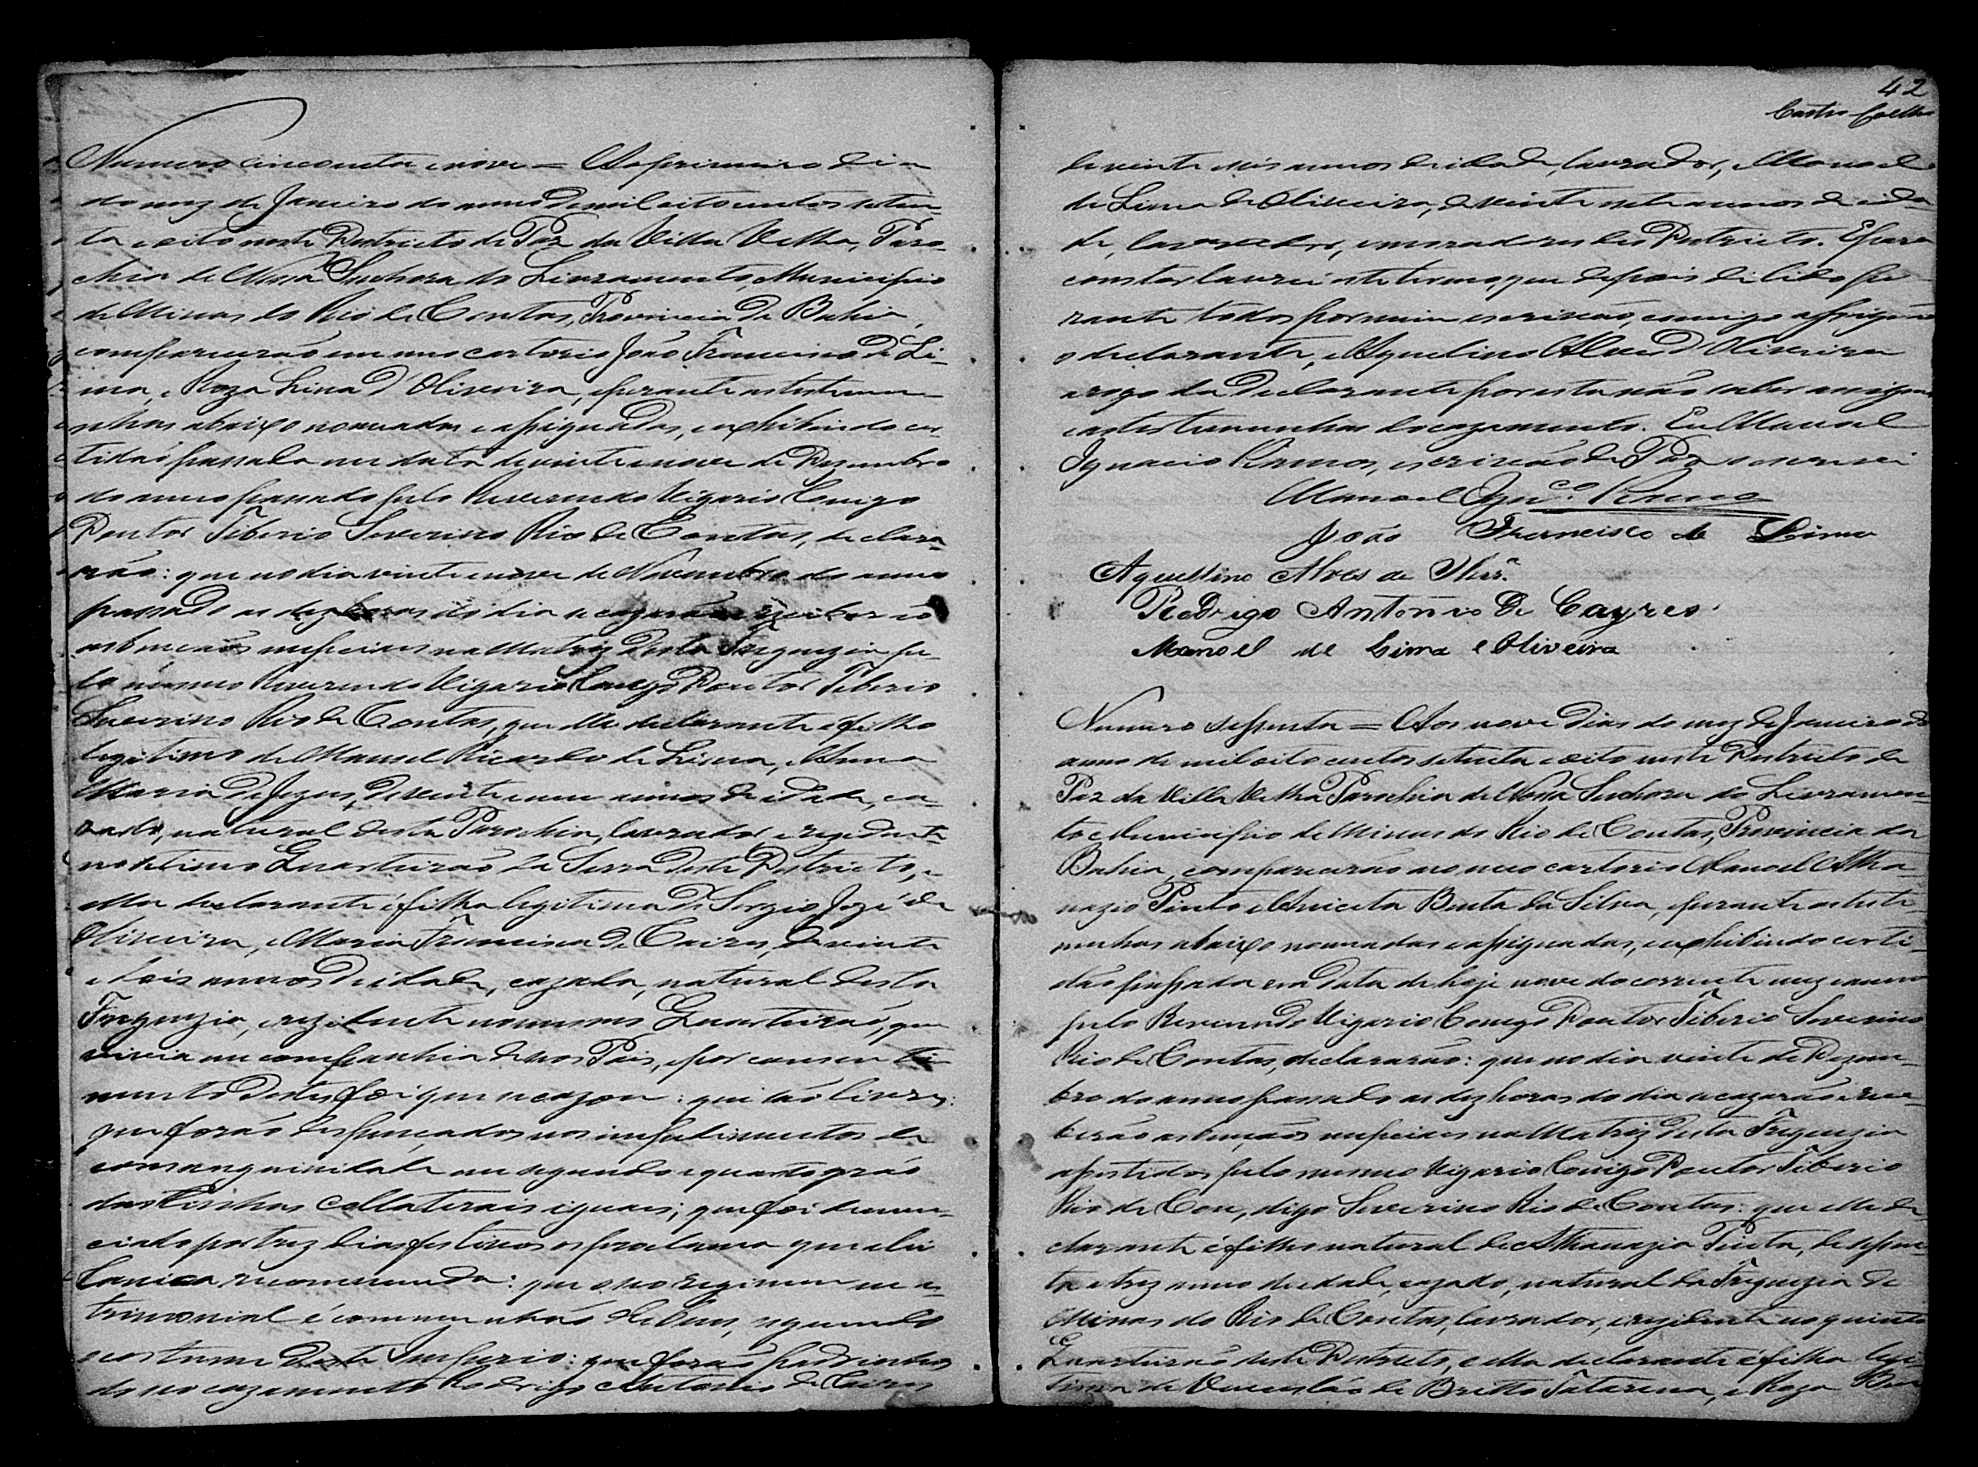 Numero cincoenta e nove = Ao primeiro dia
do mez de Janeiro do anno de mil oito centos seten-
ta e oito neste Districto de Paz da Villa Velha, Paro-
chia de Nossa Senhora do Livramento, Municipio
de Minas do Rio de Contas, Provincia da Bahia,
comparecerão em meo cartorio João Francisco de Li-
ma, e Roza Lina d'Oliveira, e perante as testemu-
nhas abaixo nomeadas e assignadas, e exhibindo cer-
tidão passada em data de vinte e nove de Dezembro
do anno passado pelo Reverendo Vigario Conego
Doutor Tiberio Severino Rio de Contas, declara-
rão: que no dia vinte e nove de Novembro do anno
passado as dez horas do dia se cazarão e receberão
as benções nupciais na Matriz desta Freguezia pe-
lo mesmo Reverendo Vigario Conego Doutor Tiberio
Severino Rio de Contas, que elle declarante é filho
legitimo de Manoel Ricardo de Lima, e Anna
Maria de Jezus, de vinte e annos de idade, ca-
zado, natural desta Parochia, lavrador e rezidente
no setimo Quarteirão da Serra deste Districto, e
ella declarante é filha legitima de Sergio Jozé de
Oliveira, e Maria Francisca de Caires, de vinte
e dois annos de idade, cazada, natural desta
Freguezia, e rezidente no mesmo Quarteirão, que
vivia em companhia de seos Pais, e por consenti-
mento destes foi que se cazou: que são livres:
que forão dispensados nos impedimentos de
consanguinidade em segundo e quarto gráo
das Linhas collaterais iguais; que foi denun-
ciado por trez dias festivos os proclamas que a lei
Canica recommenda: que o seo regimen ma-
trimonial é communhão de bens, segundo
o costume deste Imperio: que forão padrinhos
do seo cazamento Rodrigo Antonio de Caires
42
Castro Coelho
de vinte e seis annos de idade, lavrador, e Manoel
de Lima de Oliveira, de vinte e sete annos de ida-
de, lavrador, e moradores des Districto. E para
constar lavrei este termo, que depois de lido pe-
rante todos por mim escrivão, comigo assignão
o declarante, e Aquelino Alves d'Oliveira
a rogo da declarante por esta não saber assignar
e as testemunhas do cazamento. Eu Manoel
Ignacio Ramos, escrivão de Paz o escrevi
Manoel Ign.co Ramos
João Francisco de Lima
Aquellino Alves de Olivr.a
Rodrigo Antonio de Cayres
Manoel de Lima e Oliveira
Numero sessenta = Aos nove dias do mez de Janeiro do
anno de mil oito centos setenta e oito neste Districto de
Paz da Villa Velha Parochia de Nossa Senhora do Livramen-
to e Municipio de Minas do Rio de Contas, Provincia da
Bahia, comparecerão ao meo cartorio Manoel Atha-
nazio Pinto e Aniceta Benta da Silva, e perante as teste-
munhas abaixo nomeadas e assignadas, e exhibindo certi-
dão passada em data de hoje nove do corrente mez e anno
pelo Reverendo Vigario Conego Doutor Tiberio Severino
Rio de Contas, declararão: que no dia vinte de Dezem-
bro do anno passado as dez horas do dia se cazarão e rece-
berão as benções nupciais na Matriz desta Freguezia
assistidos pelo mesmo Vigario Conego Doutor Tiberio
Rio de Con, digo Severino Rio de Contas: que elle de-
clarante é filho natural de Athanazia Pinta, de
e trez annos de idade, cazado, natural da Freguezia de
Minas do Rio de Contas, lavrador, e rezidente no quinto
Quarteirão deste Districto, e ella declarante é filha legi-
tima de Venceslão de Britto e Roza